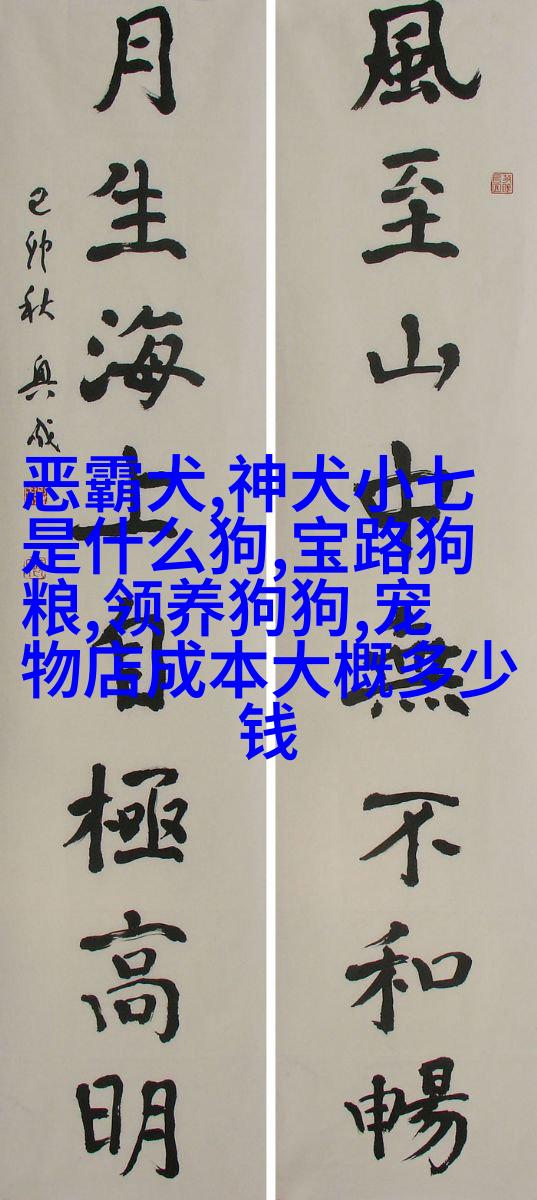 風至山中無不和暢
月生海上自極高明
己卯秋
恶霸犬,神犬小七
是什么狗,宝路狗
粮,领养狗狗,宠
物店成本大概多少
钱